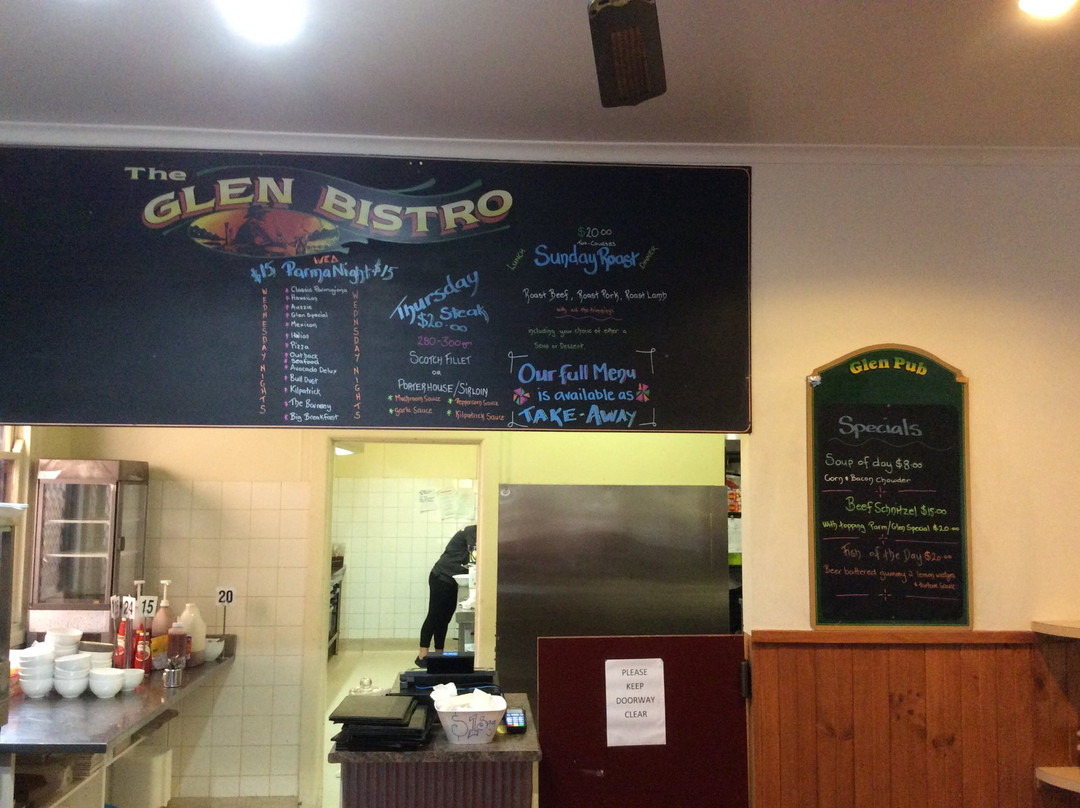 The
GLEN BISTRO
WED
$15 Parma Night $15
WEDNESDAY NIGHTS
Classic Parmigiana
Hawaiian
Aussie
Glen Special
Mexican
Pizza
Outback
Seafood
Bull Dust
Kilpatrick
The Barney
Big Breakfast
Thursday
$ Steak
$20.00
280-300gm
SCOTCH FILLET
OR
PORTERHOUSE/SIRLOIN
Mushroom Sauce
Peppercorn Sauce
Garlic Sauce
Kilpatrick Sauce
$20.00
LUNCH
Sunday Roast
DINNER
Roast Beef, Roast Pork, Roast Lamb
with all the trimmings
including your choice of either a
Soup or Dessert.
Our full Menu
is available as
TAKE-AWAY
Glen Pub
Specials
Soup of day $8.00
Corn & Bacon Chowder
Beef Schnitzel $15.00
With topping Parm/Glen Special $20.00
Fish of the Day $20.00
Beer battered gummy
24
15
20
PLEASE
KEEP
DOORWAY
CLEAR